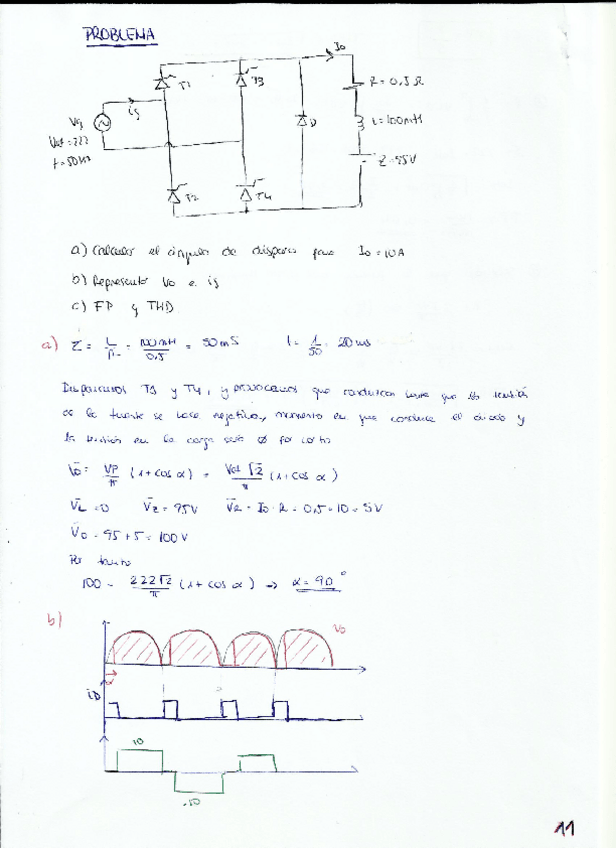 PROBLEMA
Io
T1
T3
R = 0,5 Ω
is
Vg
D
L = 100mH
Vef = 222
f = 50Hz
95V
T2
T4
a) Calcular el ángulo de disparo para Io = 10A
b) Representar Vo e is
c) FP y THD
a) Z = L/R = 100mH/0.5 = 50mS 1/50 20ms
Disparamos T3 y T4, y provocamos que conduzcan hasta que la tensión
de la fuente se hace negativa, momento en que conduce el diodo y
la tensión en la carga será Ø
Vo = VP/π (1+cos α) = Vef √2/π (1+cos α)
VL = 0 VZ = 95V VR = Io · R = 0,5 · 10 = 5V
Vo = 95 + 5 = 100V
Por tanto
100 = 222√2/π (1+cos α) → α = 90°
b)
Vo
iD
10
-10
11